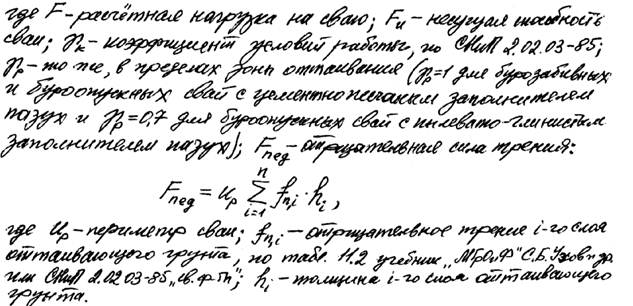 где F-расчётная нагрузка на сваю; Fи-несущая способность
сваи; γк-коэффициент условий работы, по СНиП 2.02.03-85;
γр-то же, в пределах зоны оттаивания (γр=1 для бурозабивных
и буроопускных свай с цементнопесчаным заполнителем
пазух и γр=0,7 для буроопускных свай с пылевато-глинистым
заполнителем пазух); Fпед-отрицательная сила трения:
n
Fпед = uр ∑ fп,i · hi,
i=1
где uр-периметр сваи; fп,i-отрицательное трение i-го слоя
оттаивающего грунта, по табл. 11.2 учебник „МГОиФ" С.Б. Ухов и др.
или СНиП 2.02.03-85 „св. ф-ты"; hi-толщина i-го слоя оттаивающего
грунта.